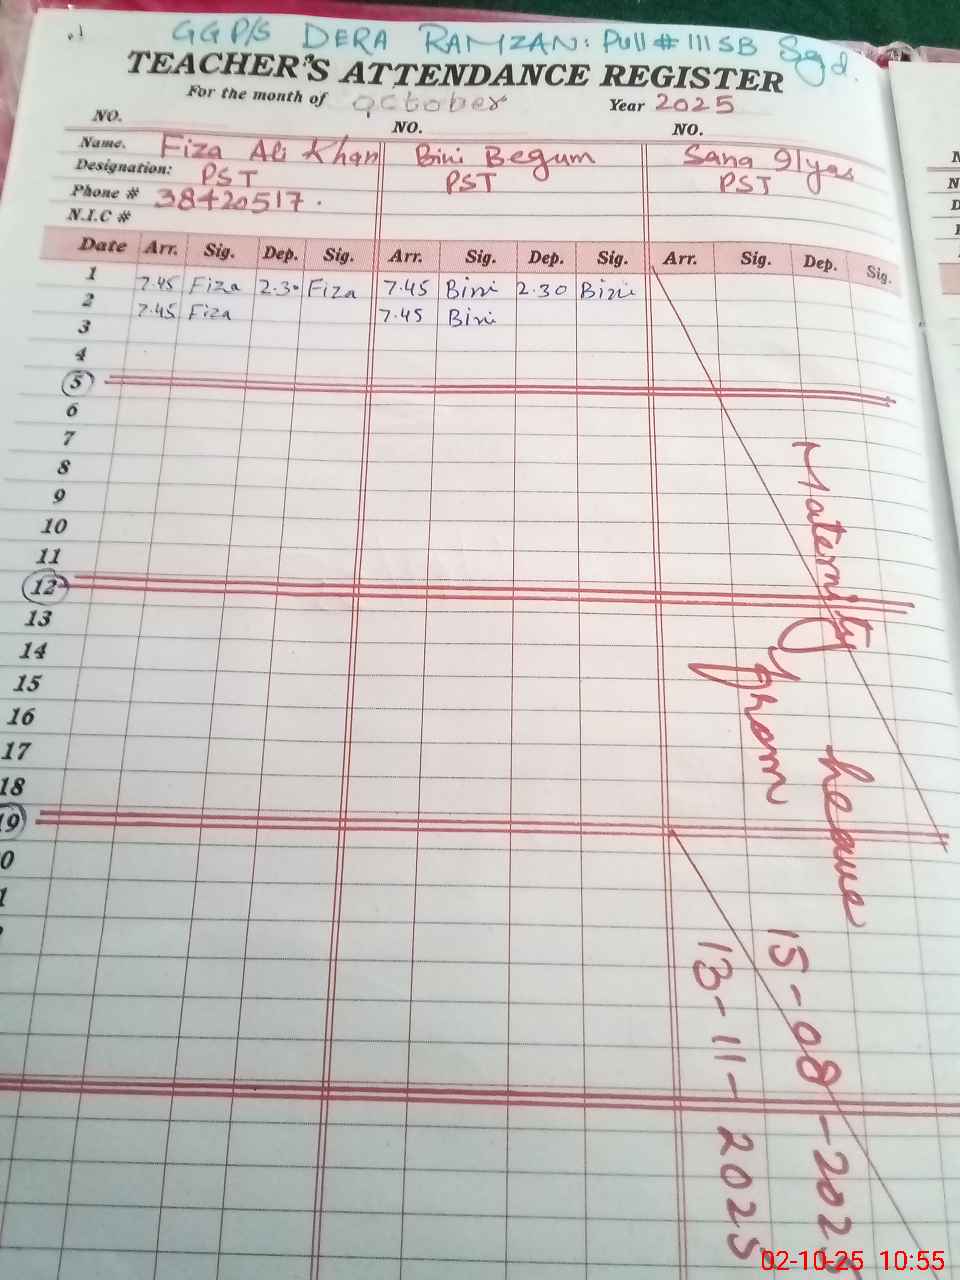 .1
GGP/S DERA RAMZAN: Pull # 111 SB Sgd.
TEACHER'S ATTENDANCE REGISTER
For the month of October Year 2025
NO. NO. NO.
Name. Fiza Ali Khan Bini Begum Sana Ilyas
Designation: PST PST PST
Phone # 38420517.
N.I.C #
Date Arr. Sig. Dep. Sig. Arr. Sig. Dep. Sig. Arr. Sig. Dep. Sig.
1 7.45 Fiza 2.30 Fiza 7.45 Bini 2.30 Bini
2 7.45 Fiza 7.45 Bini
3
4
5
6
7
8
9
10
11
12
13
14
15
16
17
18
19
0
1
Maternity heave
from 15-08-202
13-11-2025
02-10-25 10:55